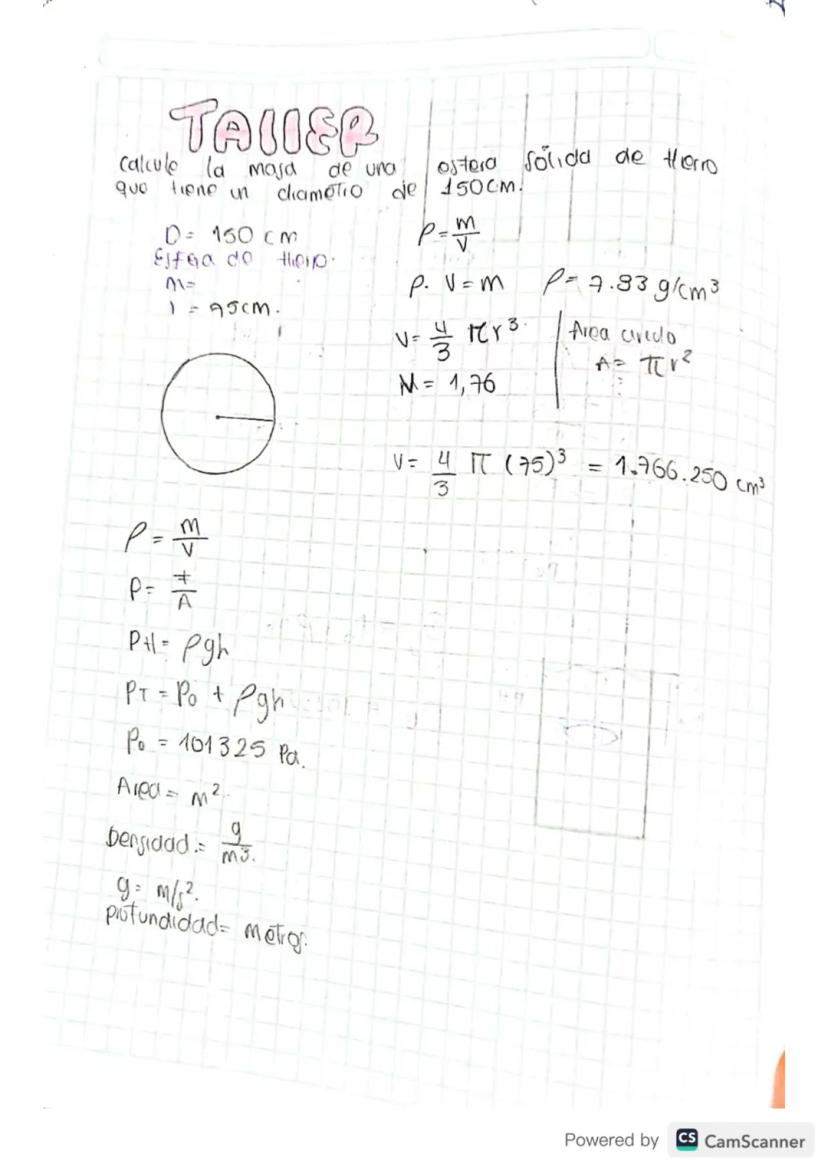 TALLER
calcule la masa de una esfera sólida de Hierro
que tiene un diametro de 150cm.
D = 150 cm
Esfera de Hierro.
m=
r = 75cm.
ρ = m/V
ρ. V = m
ρ = 7.83 g/cm³
V = 4/3 πr³.
Area circulo
A = πr²
M = 1,76
V = 4/3 π (75)³ = 1.766.250 cm³
ρ = m/V
P = F/A
PH = ρgh
PT = P₀ + ρgh
P₀ = 101325 Pa.
Area = m².
Densidad = g/m³.
g = m/s².
profundidad = metros.
Powered by CS CamScanner